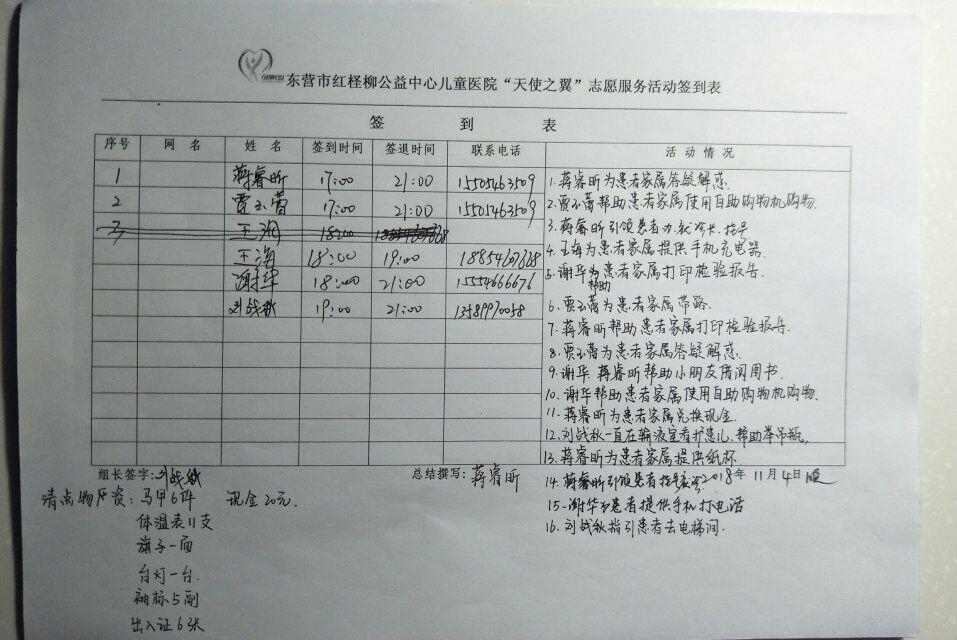 东营市红柽柳公益中心儿童医院“天使之翼”志愿服务活动签到表
签 到 表
序号 网 名 姓 名 签到时间 签退时间 联系电话 活 动 情 况
1 蒋睿昕 17:00 21:00 15505463509
2 贾玉蕾 17:00 21:00 15505463509
3 王湘 18:00
王海 18:00 19:00 18854607328
谢华 18:00 21:00 15554666676
刘战秋 19:00 21:00 13589970058
1.蒋睿昕为患者家属答疑解惑.
2.贾玉蕾帮助患者家属使用自助购物机购物.
3.蒋睿昕引领患者办就诊卡.挂号
4.王海为患者家属提供手机充电器.
5.谢华为患者家属打印检验报告.
帮助
6.贾玉蕾为患者家属带路.
7.蒋睿昕帮助患者家属打印检验报告.
8.贾玉蕾为患者家属答疑解惑.
9.谢华 蒋睿昕帮助小朋友借阅图书.
10.谢华帮助患者家属使用自助购物机购物.
11.蒋睿昕为患者家属兑换现金.
12.刘战秋一直在输液室看护患儿.帮助举吊瓶.
13.蒋睿昕为患者家属提供纸杯
14.蒋睿昕引领患者挂号
15.谢华为患者提供手机打电话
16.刘战秋指引患者去电梯间.
组长签字:刘战秋 总结撰写:蒋睿昕 2018年 11月4日晚
清点物资:马甲6件 现金20元.
体温表11支
旗子一面
台灯一台.
袖标5副
出入证6张